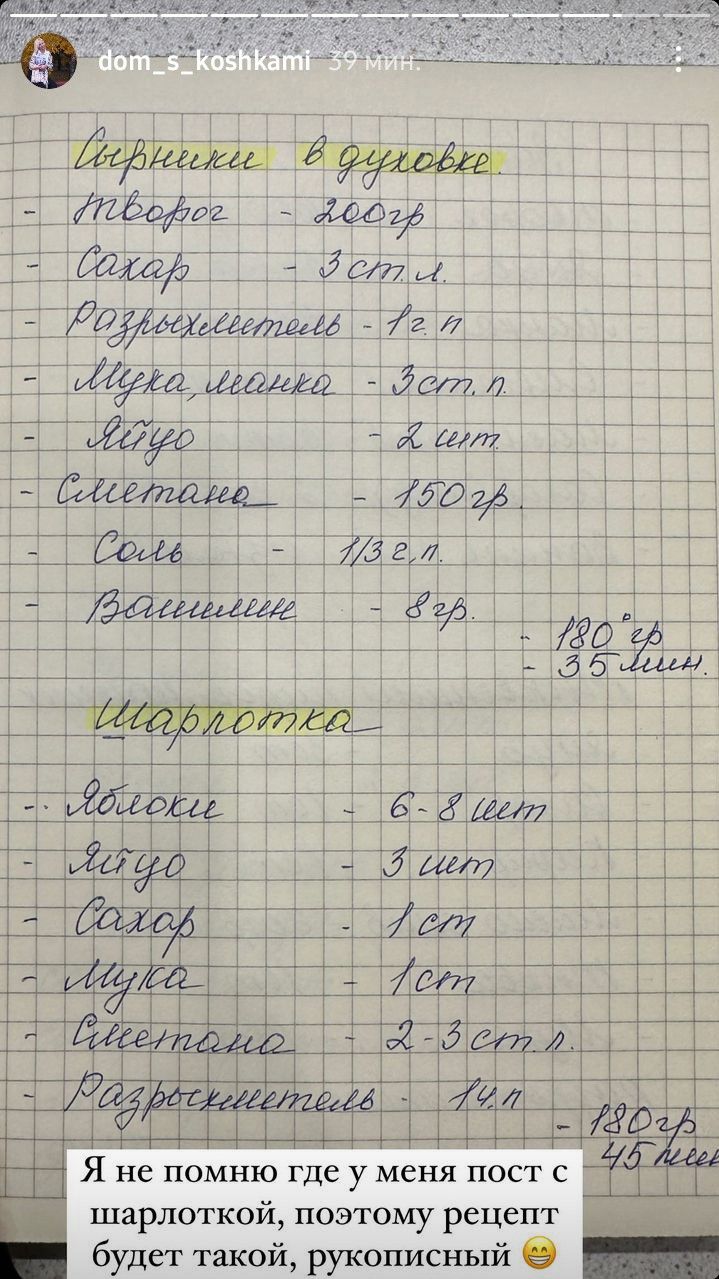 dom_s_koshkami 39 мин.
Сырники в духовке.
- творог - 200гр
- Сахар - 3 ст. л.
- Разрыхлитель - 1 г. п
- Мука, манка - 3 ст. л.
- Яйцо - 2 шт.
- Сметана - 150 гр.
- Соль - 1/3 г. п.
- Ванилин - 8 гр.
- 180° гр
- 35 мин.
Шарлотка
- Яблоки - 6 - 8 шт
- Яйцо - 3 шт
- Сахар - 1 ст
- Мука - 1 ст
- Сметана - 2 - 3 ст. л.
- Разрыхлитель - 1 ч. л
- 180 гр
45 мин
Я не помню где у меня пост с
шарлоткой, поэтому рецепт
будет такой, рукописный 😁